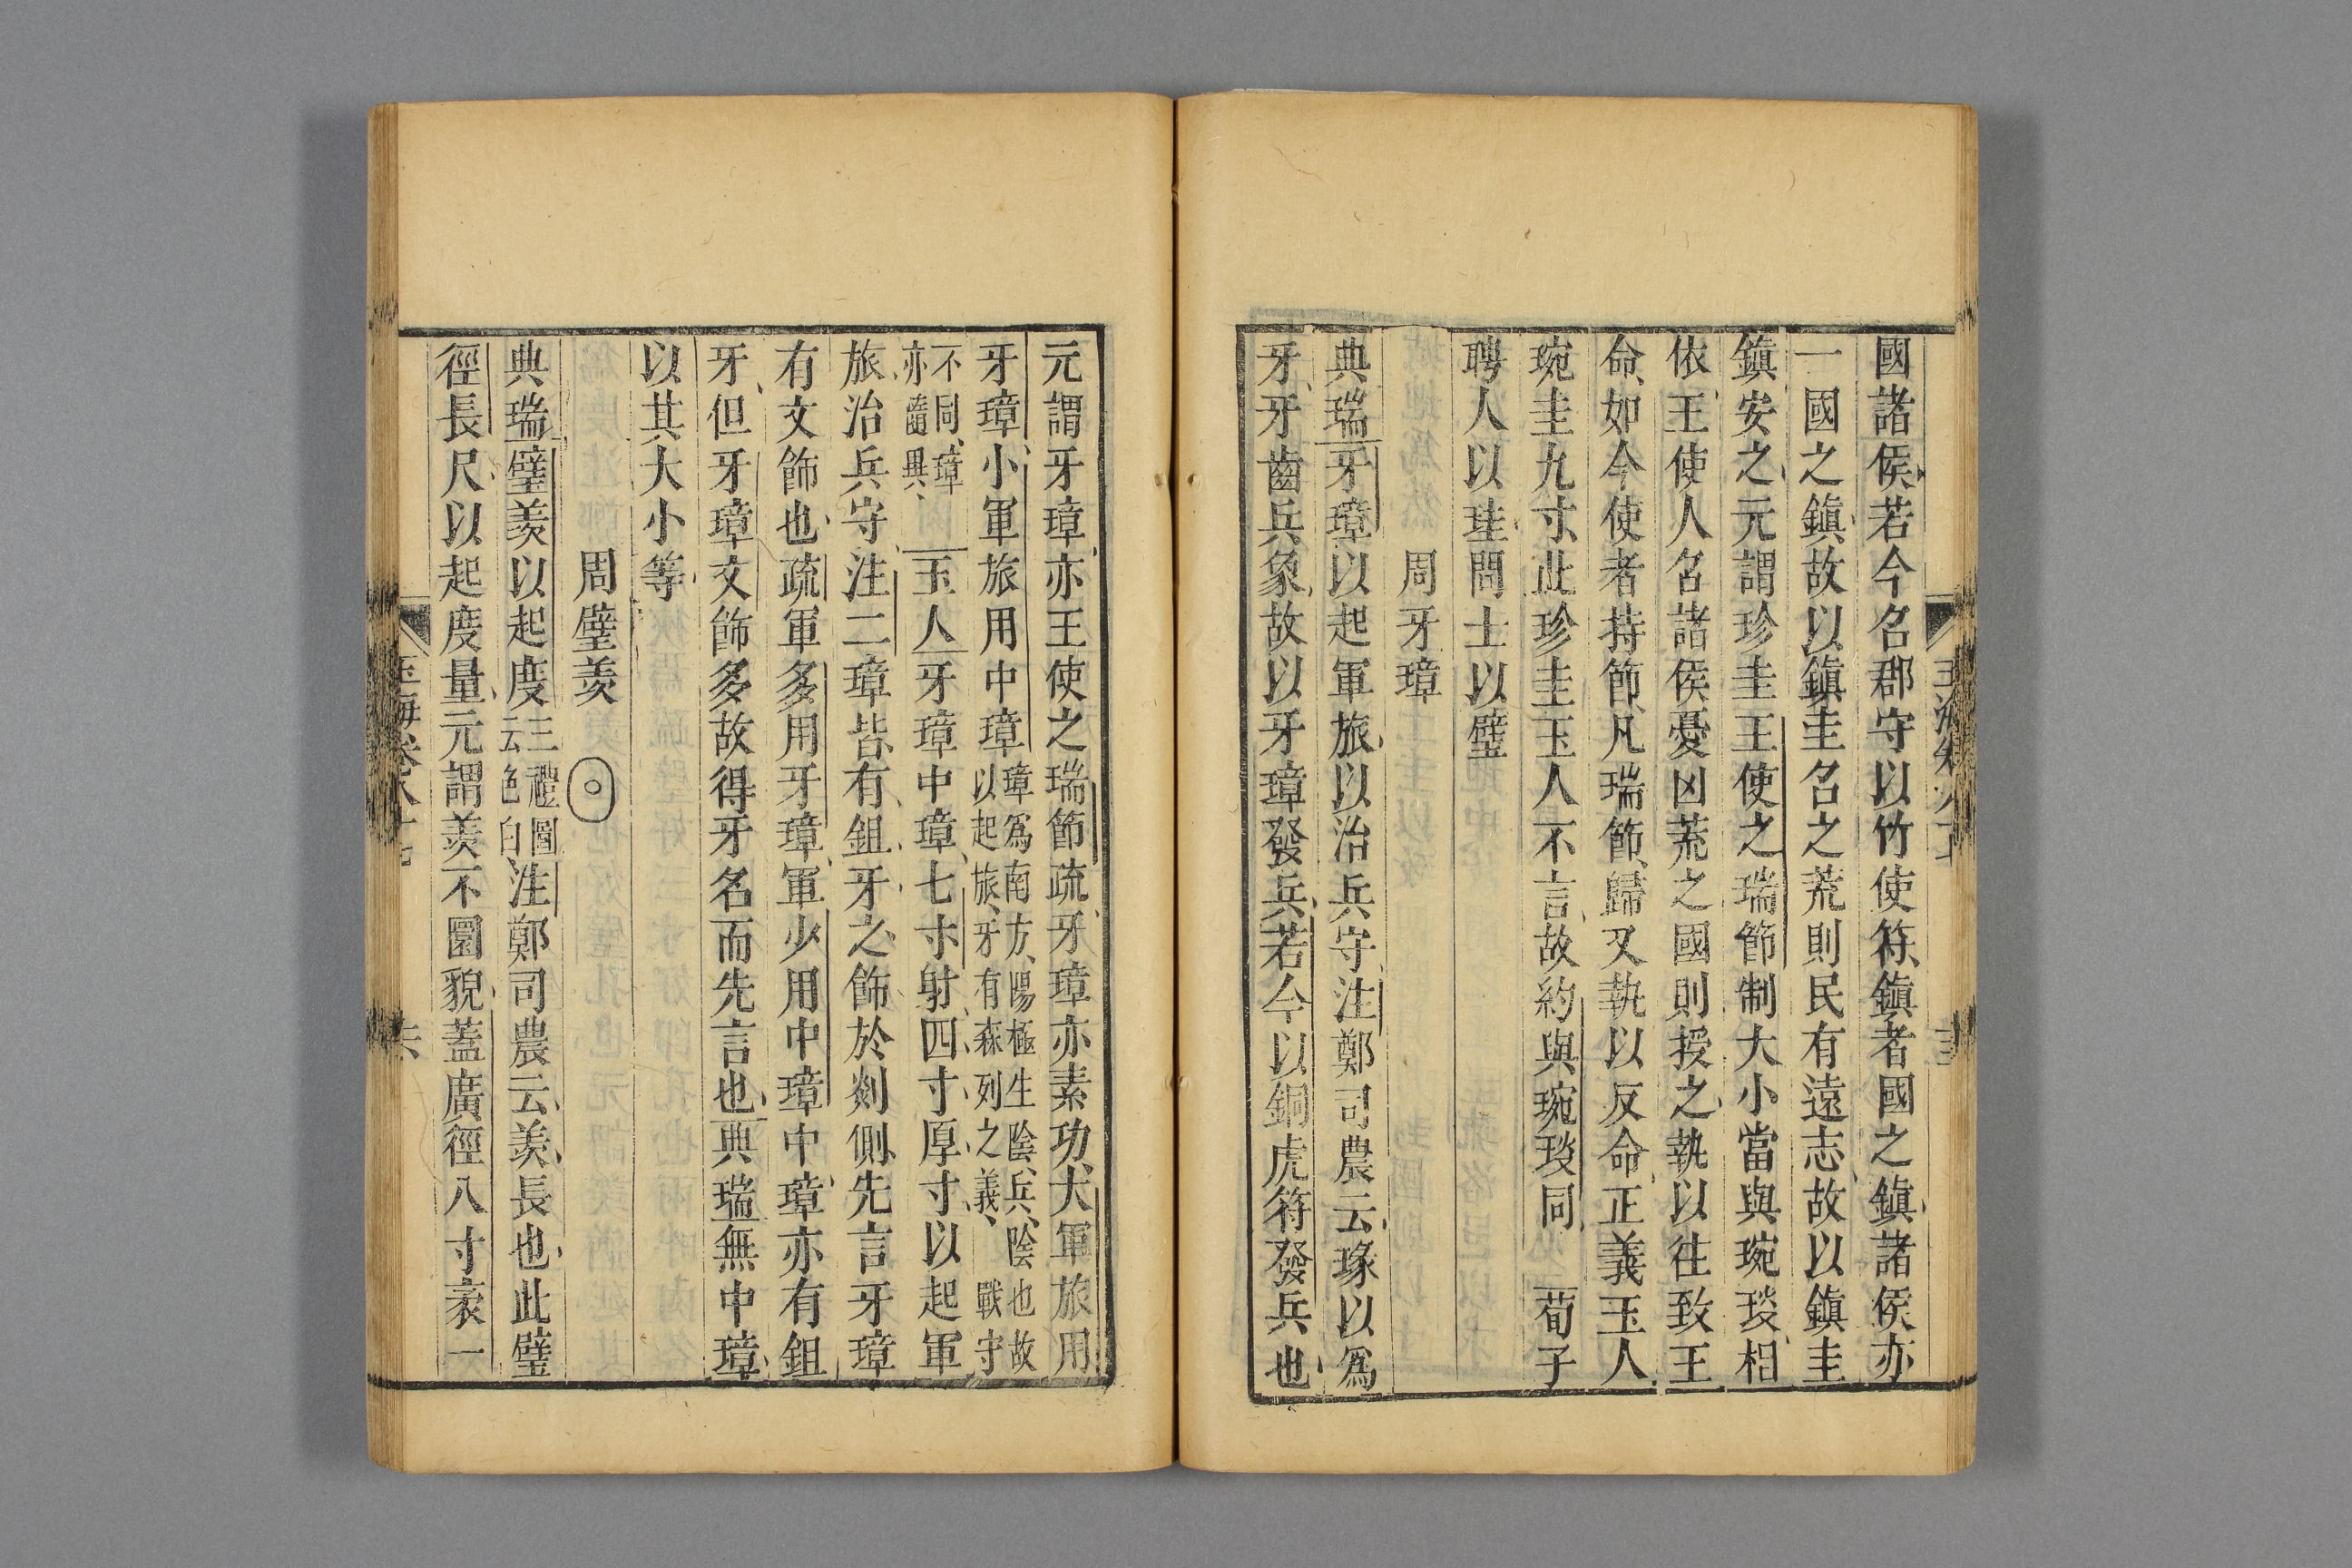 國諸侯若今名郡守以竹使符鎭者國之鎭諸侯亦
一國之鎭故以鎭圭召之荒則民有遠志故以鎭圭
鎭安之元謂珍圭王使之瑞節制大小當與琬琰相
依王使人召諸侯憂凶荒之國則授之執以徃致王
命如今使者持節凡瑞節歸又執以反命正義玉人
琬圭九寸此珍圭玉人不言故約與琬琰同 荀子
聘人以珪問士以璧
周牙璋
典瑞牙璋以起軍旅以治兵守注鄭司農云瑑以爲
牙牙齒兵象故以牙璋發兵若今以銅虎符發兵也
元謂牙璋亦王使之瑞節疏牙璋亦素功大軍旅用
牙璋小軍旅用中璋璋爲南方陽極生陰兵陰也故以起旅牙有森列之義 戰守
不同璋亦齒異 玉人牙璋中璋七寸射四寸厚寸以起軍
旅治兵守注二璋皆有鉏牙之飾於剡側先言牙璋
有文飾也疏軍多用牙璋軍少用中璋中璋亦有鉏
牙但牙璋文飾多故得牙名而先言也典瑞無中璋
以其大小等
周璧羨
典瑞璧羨以起度三禮圖云色白注鄭司農云羨長也此璧
徑長尺以起度量元謂羨不圜貌蓋廣徑八寸袤一
玉海卷八十七
六